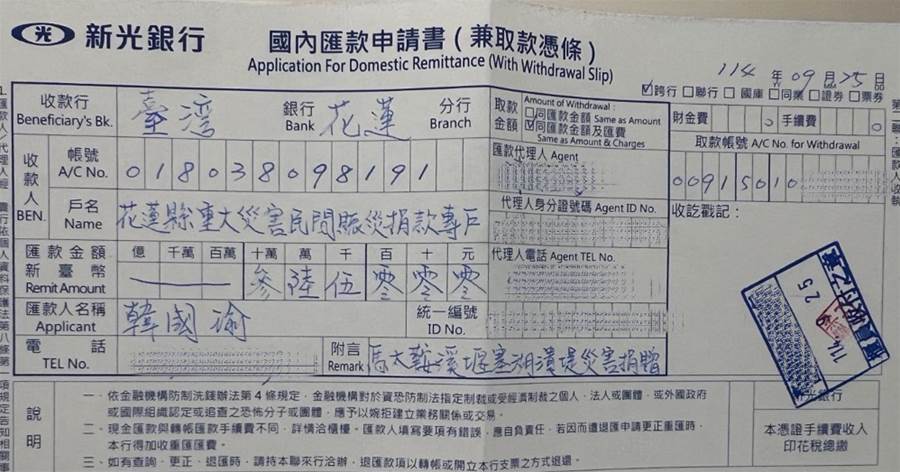 光 新光銀行
國內匯款申請書(兼取款憑條)
Application For Domestic Remittance (With Withdrawal Slip)
114 年 09 月 25 日
☑跨行 □聯行 □國庫 □同業 □證券 □票券
收款行 Beneficiary's Bk. 臺灣 銀行 Bank 花蓮 分行 Branch
取款金額 Amount of Withdrawal:
□同匯款金額 Same as Amount
☑同匯款金額及匯費 Same as Amount & Charges
財金費 0 手續費 0
收款人 BEN.
帳號 A/C No. 018038098191
匯款代理人 Agent
取款帳號 A/C No. for Withdrawal
00915010
戶名 Name 花蓮縣重大災害民間賑災捐款專戶
代理人身分證號碼 Agent ID No.
收訖戳記:
匯款金額 新臺幣 Remit Amount
億 千萬 百萬 十萬 萬 千 百 十 元
參 陸 伍 零 零 零
代理人電話 Agent TEL No.
匯款人名稱 Applicant 韓國瑜
統一編號 ID No.
電話 TEL No.
附言 Remark 馬太鞍溪堰塞湖潰堤災害捐贈
說明
一、依金融機構防制洗錢辦法第4條規定,金融機構對於資恐防制法指定制裁或受經濟制裁之個人、法人或團體,或外國政府
或國際組織認定或追查之恐怖分子或團體,應予以婉拒建立業務關係或交易。
二、現金匯款與轉帳匯款手續費不同,詳情洽櫃檯。匯款人填寫要項有錯誤,應自負責任,若因而遭退匯申請更正重匯時,
本行得加收重匯匯費。
三、如有查詢、更正、退匯時,請持本聯來行洽辦,退匯款項以轉帳或開立本行支票之方式退還。
本憑證手續費收入
印花稅總繳